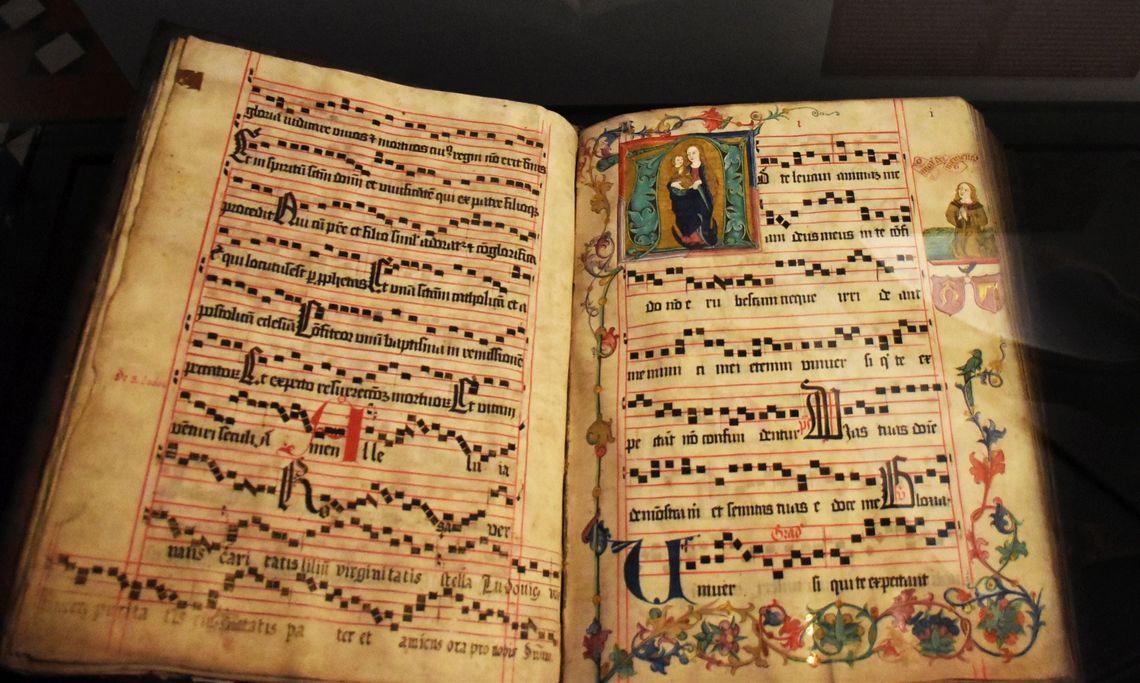 gloria iudicare viuos ⁊ mortuos cuiꝰ regni nō erit finis
Et in spiritū sctm̄ et viuificātē qui ex patre filioqꝫ
procedit Qui cū pr̄e et filio simul adorat᷑ ⁊ cōglorifica
t᷑ qui locutus est p̱ ꝓphetas Et vnā sctām catholicā et a
postolicā ecclesiā Cōfiteor vnū baptisma in remissionē
peccatoꝝ Et expecto resurrectōꝫ mortuoꝝ Et vitam
venturi seculi A men Alle lu ia
Ro sa ver
nans cari tatis liliū virginitatis stella Ludouig
purita tis pa ter et amicus ora pro nobis
i
i
D te leuaui animaz me
am deus meus in te cōfi
do nō e ru bescam neque irri de ant
me inimi ci mei etenim vniuer si q̇ te ex
pe ctāt nō confun dentur ps Uias tuas dn̄e
demōstra m̄ et semitas tuas e doce me Gloria
Grad᷑
Uniuer si qui te expectant